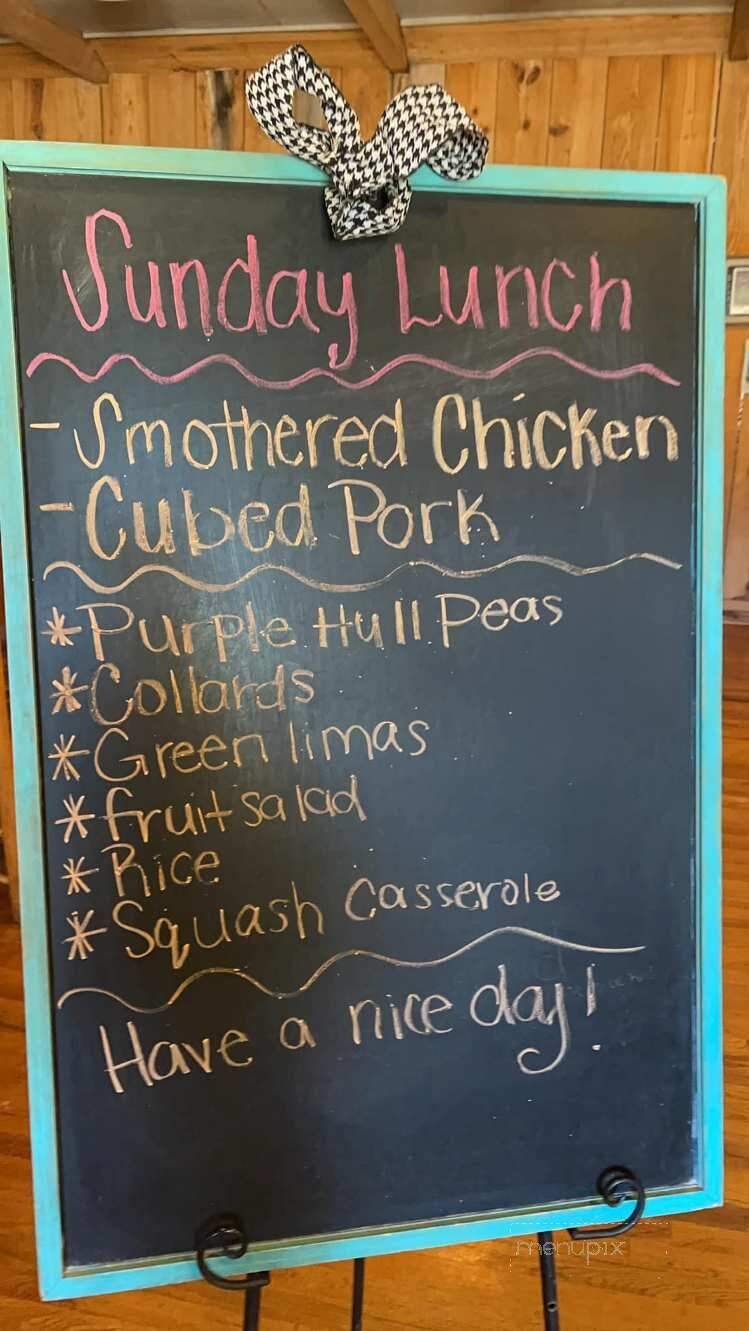 Sunday Lunch
- Smothered Chicken
- Cubed Pork
*Purple Hull Peas
*Collards
*Green limas
*fruit salad
*Rice
*Squash Casserole
Have a nice day!
menupix